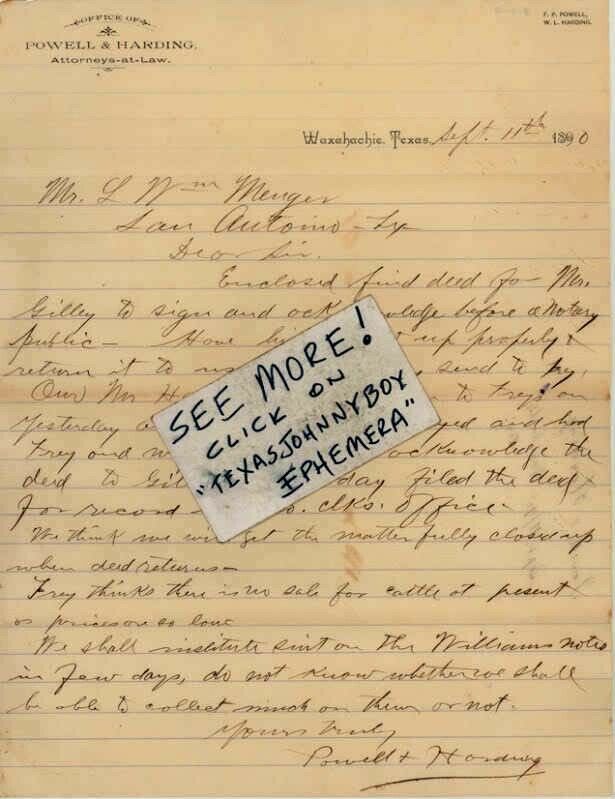 OFFICE OF
POWELL & HARDING,
Attorneys-at-Law.
F. P. POWELL,
W. L. HARDING.
Waxahachie, Texas, Sept. 11th 1890
Mr. L Wm Menger
San Antonio - Tx
Dear Sir.
Enclosed find deed for Mr.
Gilley to sign and ack wledge before a Notary
public - Have up properly &
return it to us send to Frey.
Our Mr H to Frey's on
yesterday a yed and had
Frey and acknowledge the
deed to Gil day filed the deed
for record - o. clks. office.
We think we will get the matter fully closed up
when deed returns -
Frey thinks there is no sale for cattle at present
as prices are so low
We shall institute suit on the Williams notes
in few days, do not know whether we shall
be able to collect much on them or not.
Yours truly
Powell & Harding
SEE MORE!
CLICK ON
"TEXASJOHNNYBOY
EPHEMERA"